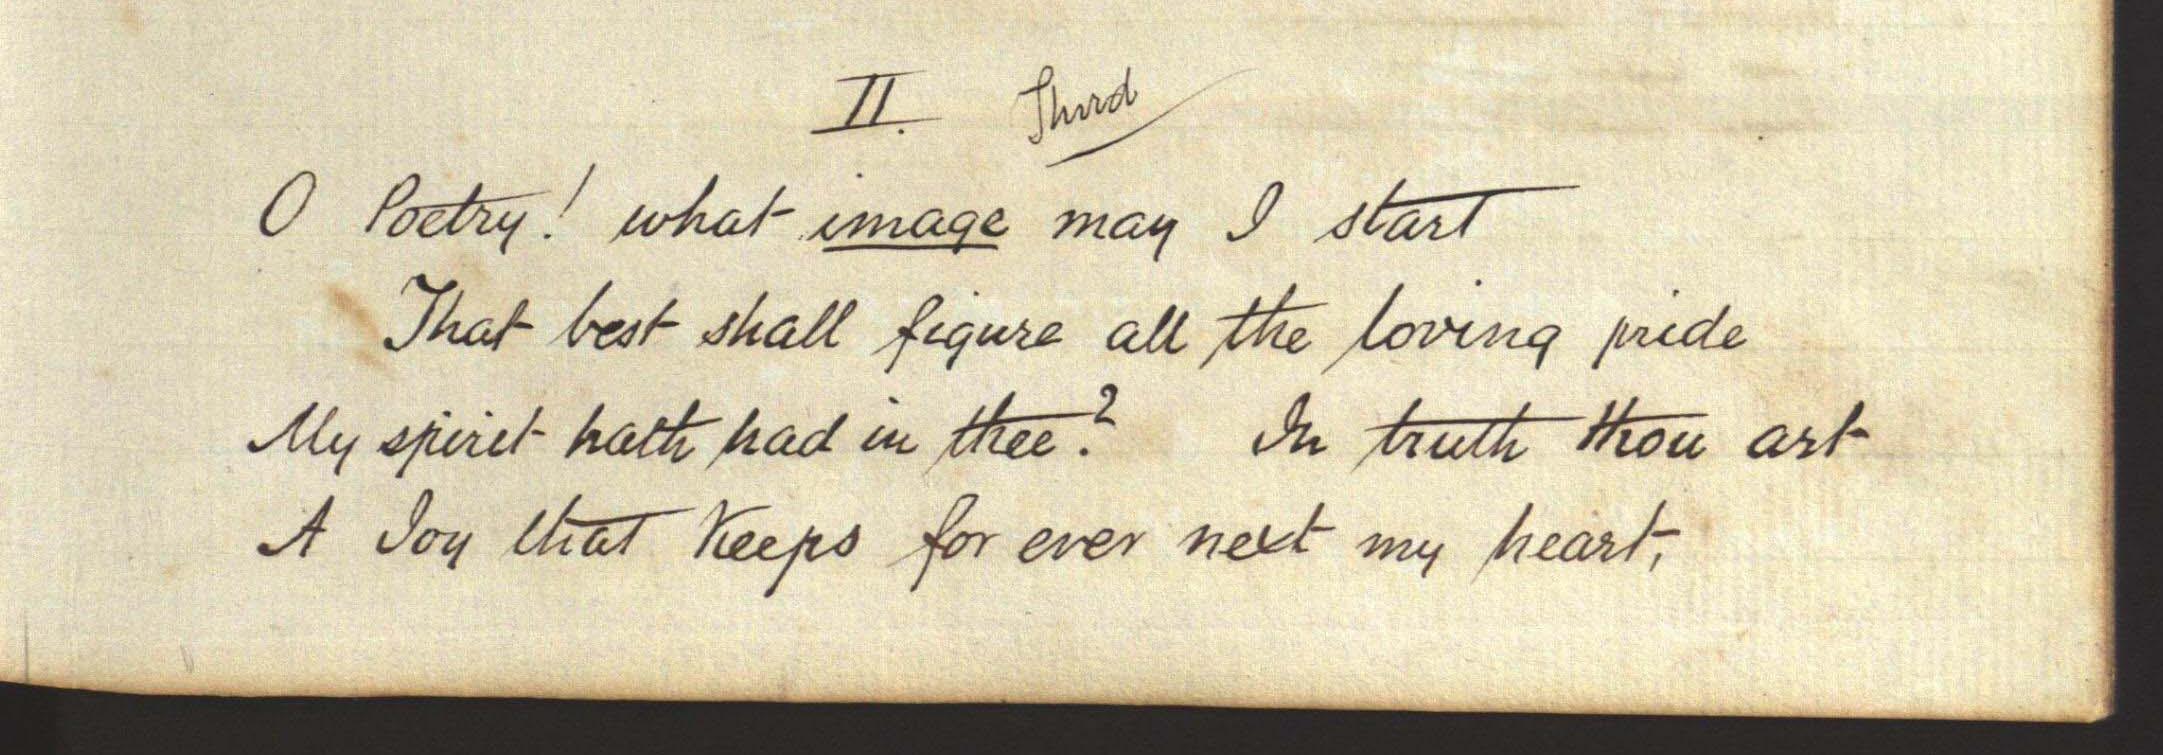 II. Third
O Poetry! what image may I start
That best shall figure all the loving pride
My spirit hath had in thee? In truth thou art
A Joy that keeps for ever next my heart,